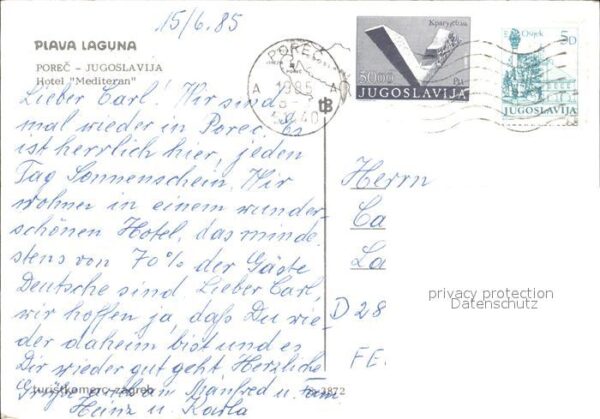 15/6.85
PLAVA LAGUNA
POREČ - JUGOSLAVIJA
Hotel "Mediteran"
Lieber Carl! Wir sind
mal wieder in Porec. Es
ist herrlich hier, jeden
Tag Sonnenschein. Wir
wohnen in einem wunder-
schönen Hotel, das minde-
stens von 70% der Gäste
Deutsche sind. Lieber Carl,
wir hoffen ja, daß Du wie-
der daheim bist und es
Dir wieder gut geht. Herzliche
Grüße auch an Manfred u. Fam.
Heinz u. Karla
turistkomerc-zagreb
3872
POREČ
A A
Крагујевац
5000
JUGOSLAVIJA
Osijek
5D
JUGOSLAVIJA
Herrn
Ca
La
D 28
FE
privacy protection
Datenschutz